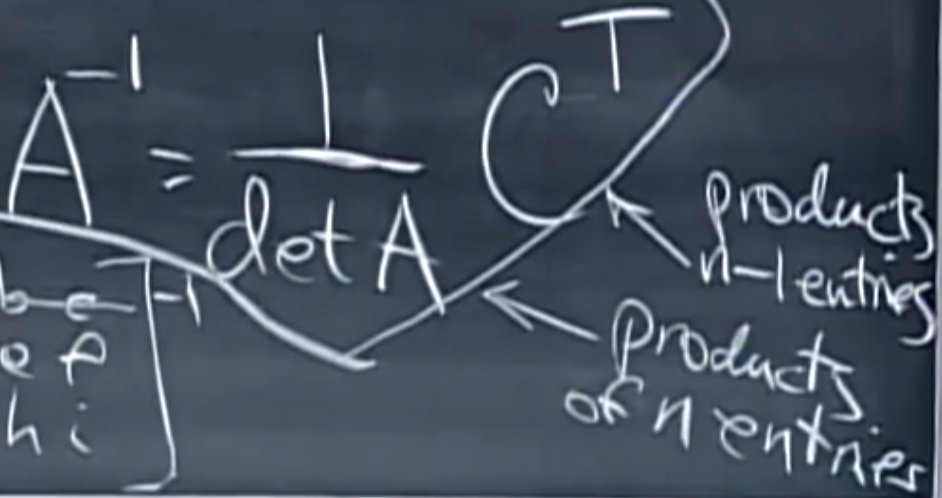 A⁻¹ = 1/det A Cᵀ
products
n-1 entries
products
of n entries
b c ]⁻¹
e f
h i